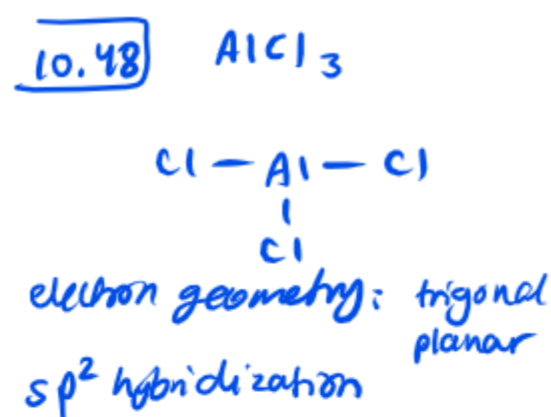 10.48 AlCl3
Cl — Al — Cl
|
Cl
electron geometry: trigonal
planar
sp² hybridization